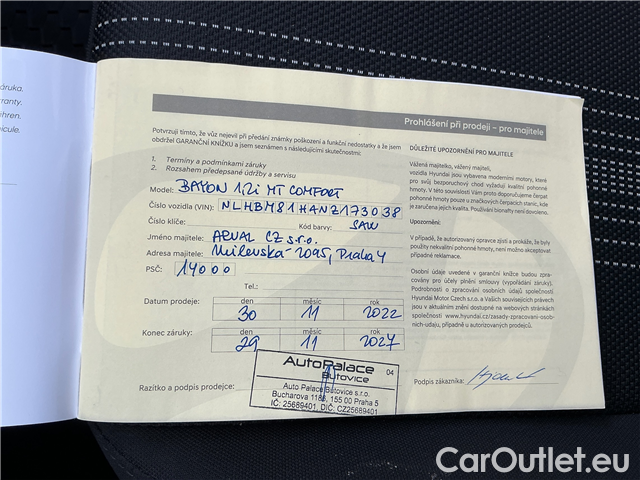 záruka.
rranty.
ihren.
icule.
Prohlášení při prodeji – pro majitele
Potvrzuji tímto, že vůz nejevil při předání známky poškození a funkční nedostatky a že jsem
obdržel GARANČNÍ KNÍŽKU a jsem seznámen s následujícími skutečnostmi:
1. Termíny a podmínkami záruky
2. Rozsahem předepsané údržby a servisu
Model: BAYON 1,2i MT COMFORT
Číslo vozidla (VIN): NLHBM81HANZ173038
Číslo klíče: Kód barvy: SAW
Jméno majitele: ARVAL CZ s.r.o.
Adresa majitele: Milevská 2095, Praha 4
PSČ: 14000
Tel.:
Datum prodeje: den měsíc rok
30 11 2022
Konec záruky: den měsíc rok
29 11 2027
Razítko a podpis prodejce:
AutoPalace 04
Butovice
Auto Palace Butovice s.r.o.
Bucharova 1186, 155 00 Praha 5
IČ: 25689401, DIČ: CZ25689401
DŮLEŽITÉ UPOZORNĚNÍ PRO MAJITELE
Vážená majitelko, vážený majiteli,
vozidla Hyundai jsou vybavena moderními motory, které
pro svůj bezporuchový chod vyžadují kvalitní pohonné
hmoty. V tomto ohledu Vám proto doporučujeme čerpat
pohonné hmoty pouze u značkových čerpacích stanic, kde
je zaručena jejich kvalita. Používání bionafty není dovoleno.
Upozornění:
V případě, že autorizovaný opravce zjistí a prokáže, že byly
použity nekvalitní pohonné hmoty, není možno akceptovat
případné reklamace.
Osobní údaje uvedené v garanční knížce budou zpra-
covány pro účely plnění smlouvy (vypořádání záruky).
Podrobnosti o zpracování osobních údajů společností
Hyundai Motor Czech s.r.o. a Vašich souvisejících právech
jsou v aktuálním znění dostupné na webových stránkách
společnosti www.hyundai.cz/zasady-zpracovani-osob-
nich-udaju, případně u autorizovaných prodejců.
Podpis zákazníka:
CarOutlet.eu